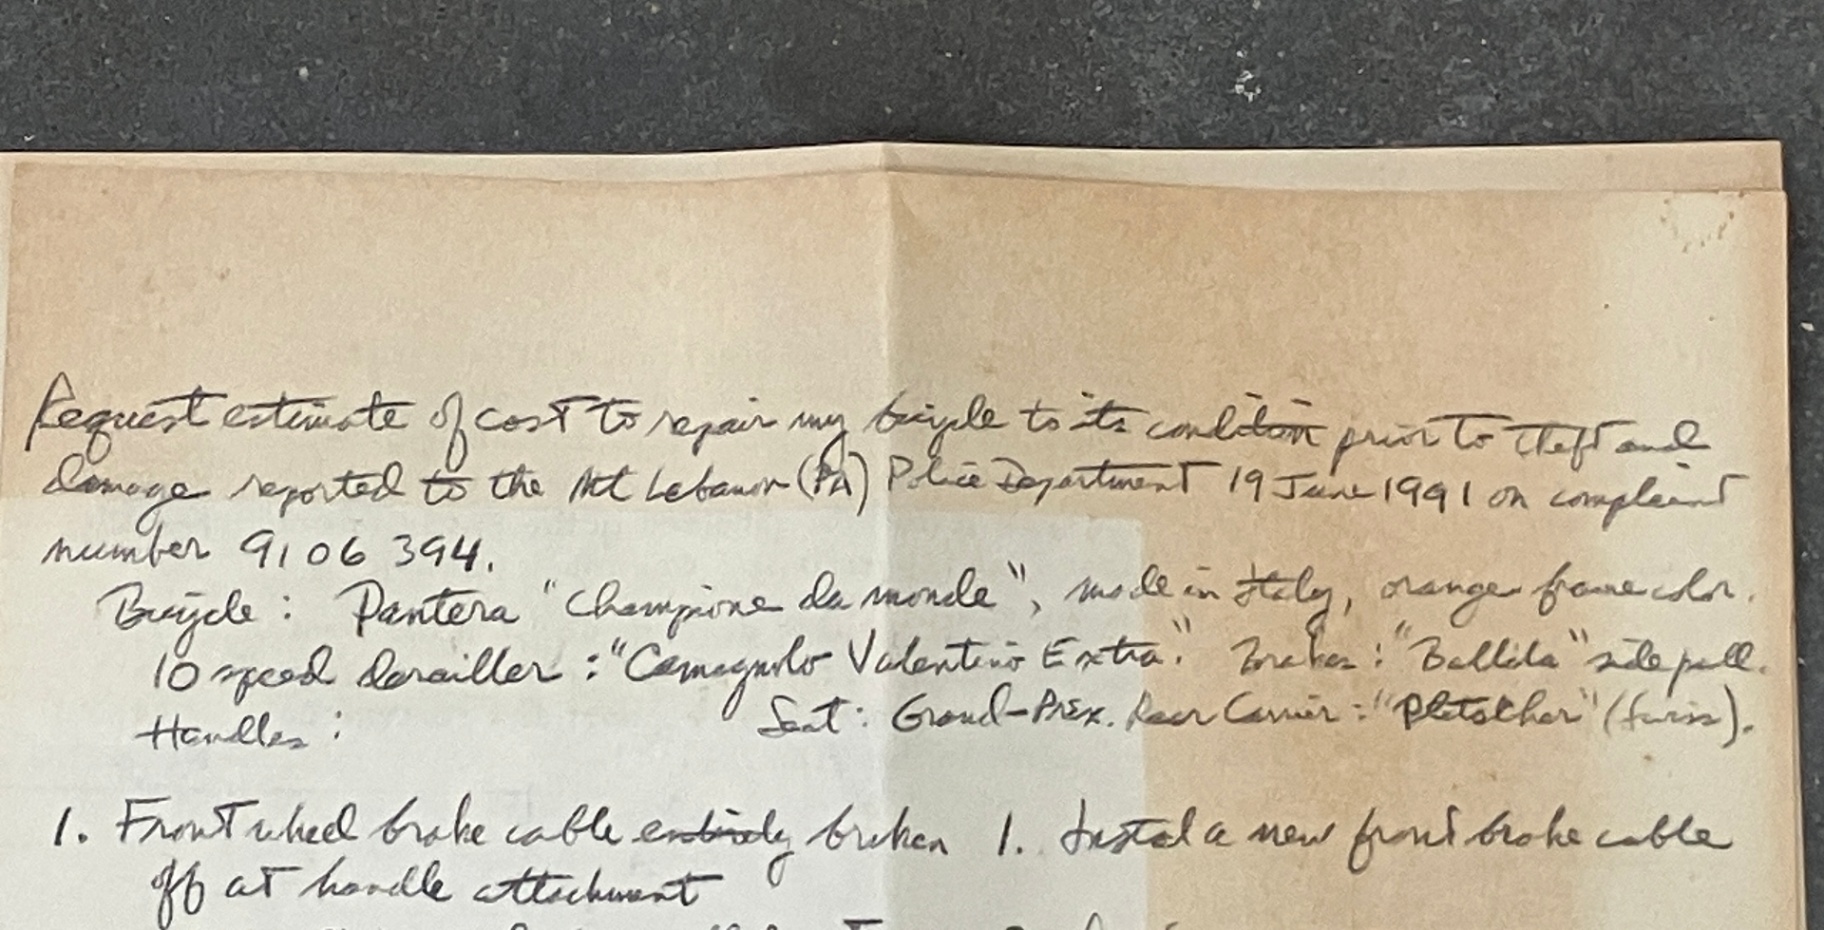 Request estimate of cost to repair my bicycle to its condition prior to theft and
damage reported to the Mt Lebanon (PA) Police Department 19 June 1991 on complaint
number 9106 394.
Bicycle: Pantera "Champione da monde", made in Italy, orange frame color.
10 speed derailler: "Camagnolo Valentino Extra." Brakes: "Ballila" side pull.
Handles: Seat: Grand-Prix. Rear Carrier: "Pletscher" (Swiss).
1. Front wheel brake cable entirely broken 1. Instal a new front brake cable
off at handle attachment